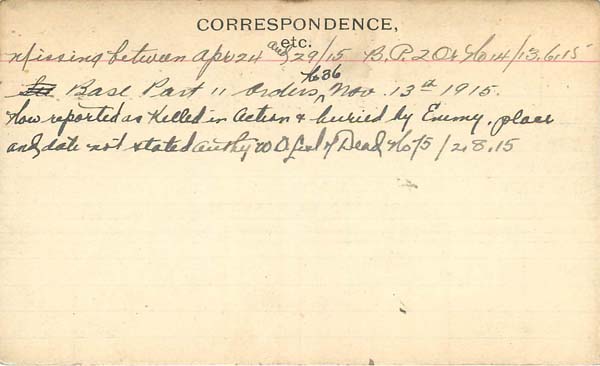 CORRESPONDENCE,
etc.
Missing between Apr 24 and 29/15 B.P.2 Or No 14/13.6.15
Base Part 11 Orders, No 36 Nov. 13th 1915.
Now reported as Killed in Action & buried by Enemy, place
and date not stated Authy W O List of Dead No 75/2.8.15